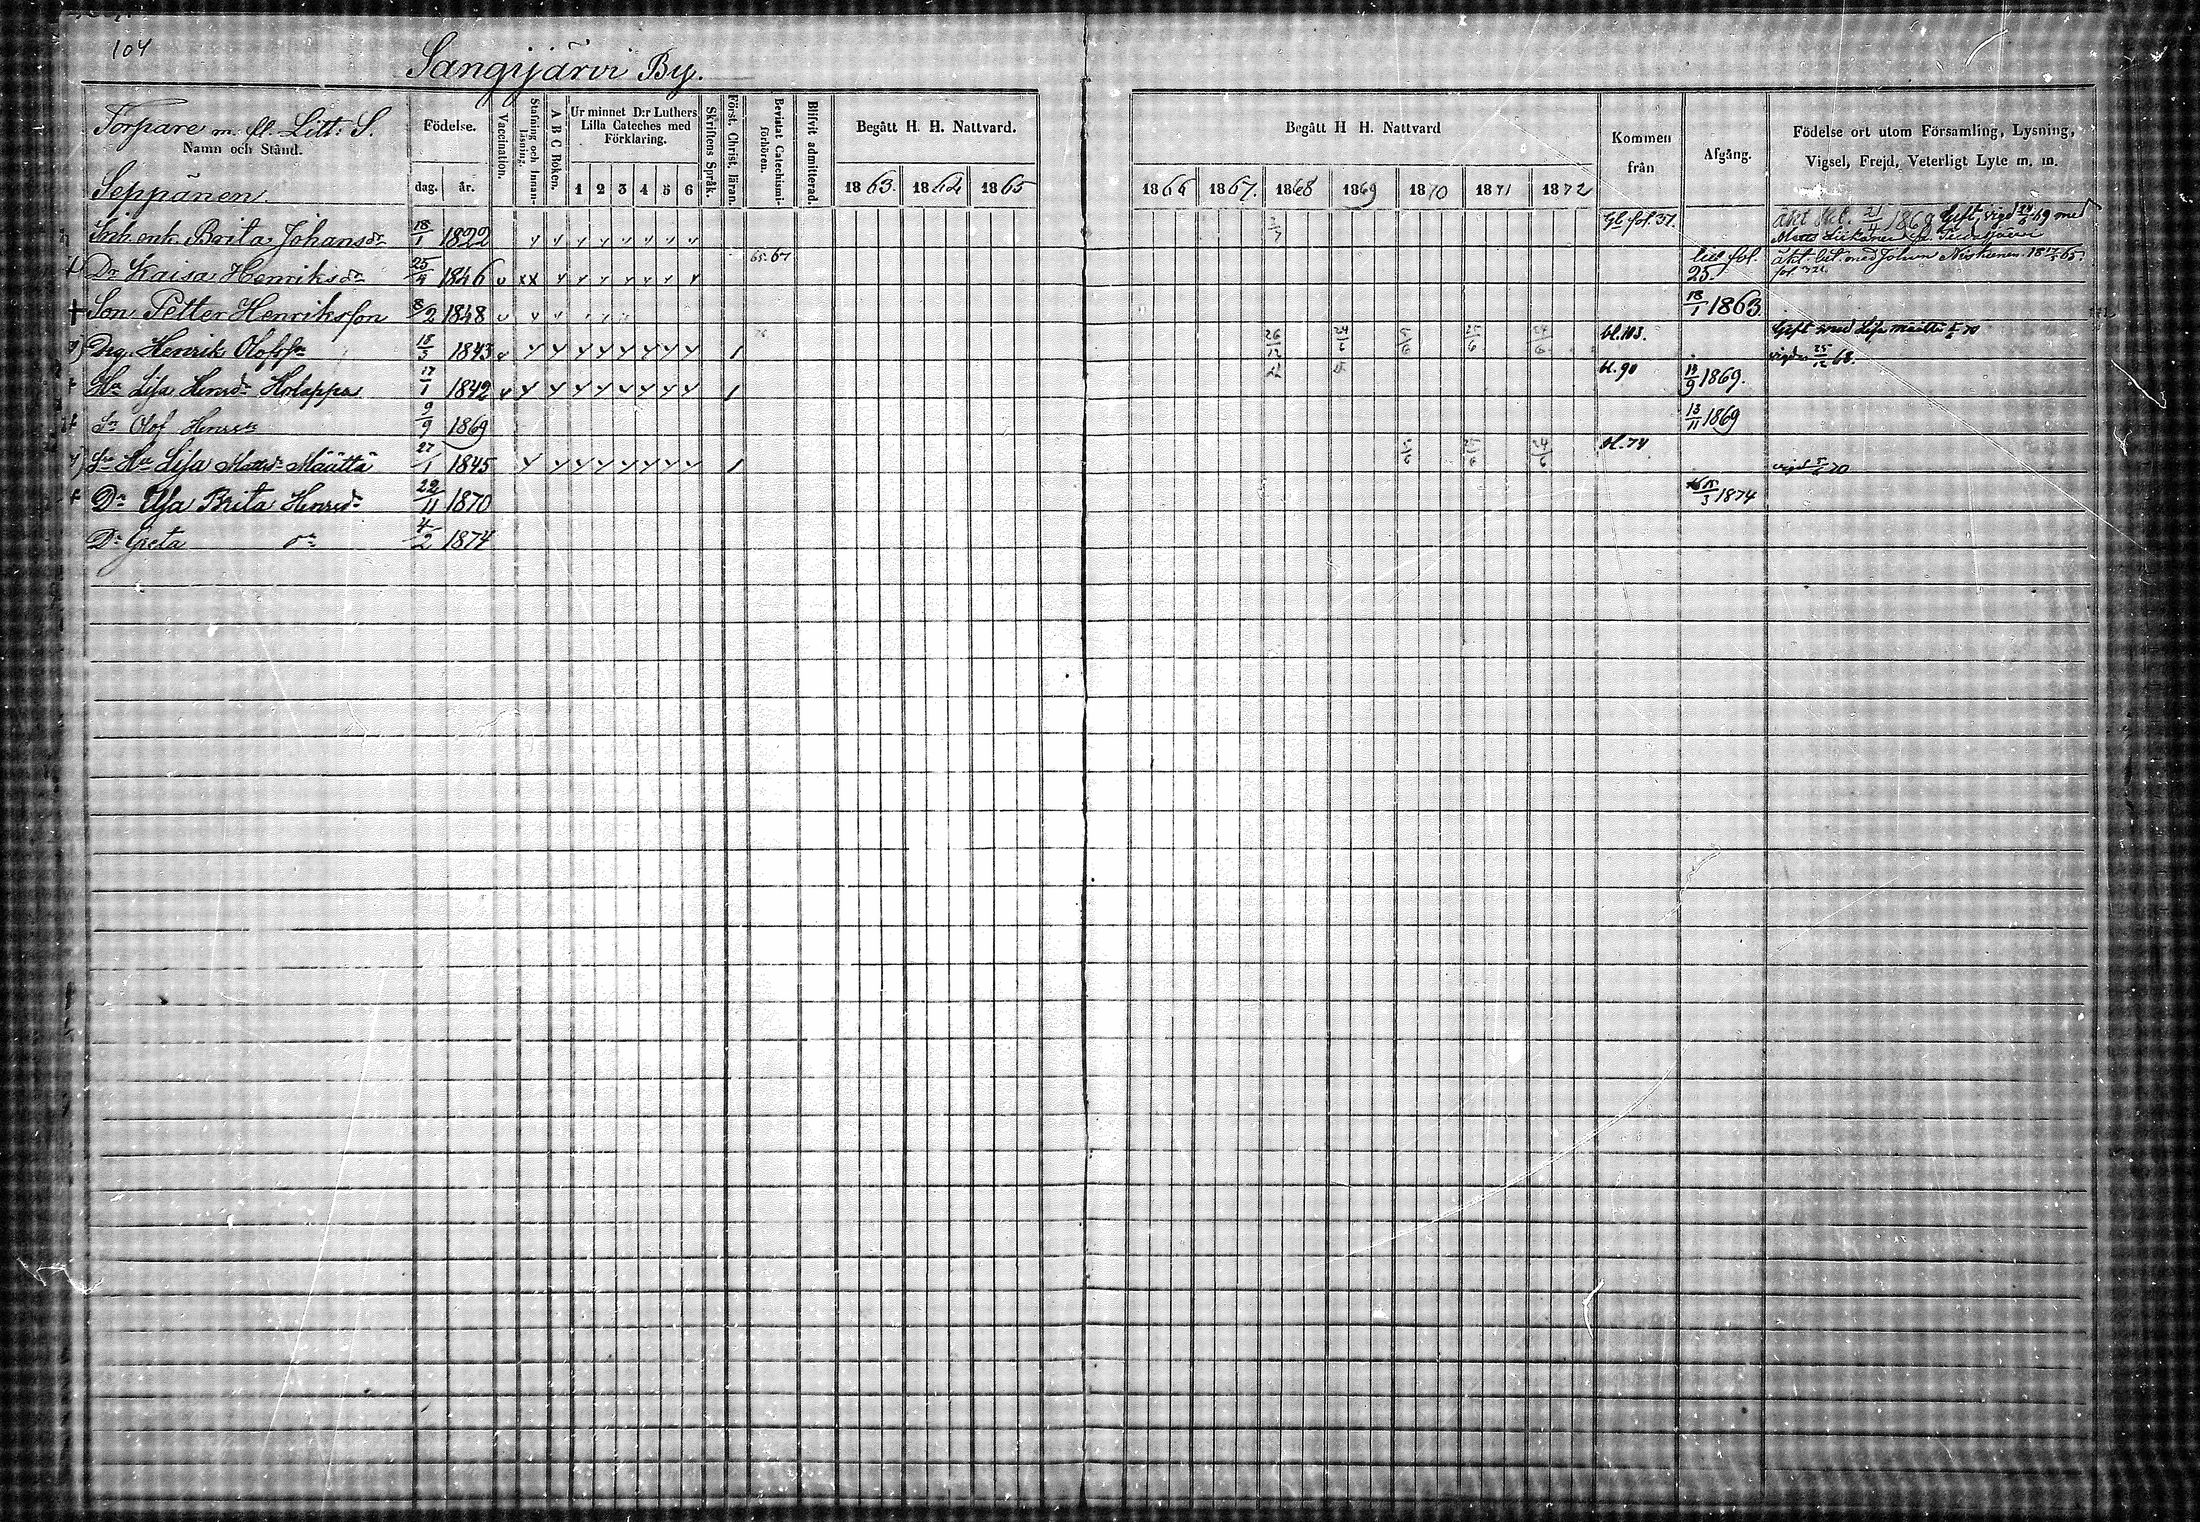 104
Sangijärvi By.
Torpare m. fl. Litt: S.
Namn och Stånd.
Seppänen.
Födelse.
dag. år.
Vaccination.
Stafning och Innan-läsning.
A B C Boken.
Ur minnet D:r Luthers Lilla Cateches med Förklaring.
1 2 3 4 5 6
Skriftens Språk.
Först. Christ. läran.
Bevistat Catechismi-förhören.
Blifvit admitterad.
Begått H. H. Nattvard.
1863. 1864 1865
Begått H H. Nattvard
1866 1867. 1868 1869 1870 1871 1872
Kommen från
Afgång.
Födelse ort utom Församling, Lysning, Vigsel, Frejd, Veterligt Lyte m. m.
Inh. enk. Brita Johansdr 18/1 1822 v v v v v v v v Gl. fol. 37. 1869 Gift, vigd 69 med
Matts
65. 67
Dr Kaisa Henriksdr 25/4 1846 v xx v v v v v v v fol. 25. med Johan 65.
+ Son Petter Henriksson 8/2 1848 v v v 18/1 1863.
Drg. Henrik Olofsn 18/3 1843 v v v v v v v v v 1 26/12 24/6 bl. 103. Gift med Lisa Määttä 70
vigde 25/12 68.
Hu Lisa Henrdr Holappa 17/1 1842 v v v v v v v v v 1 bl. 90 19/9 1869.
+ Sn Olof Henrsn 9/9 1869 13/11 1869
Hu Lisa Mattsdr Määttä 27/1 1845 v v v v v v v v 1 bl. 74 vigd 70
+ Dr Elsa Brita Henrsdr 22/11 1870 15/3 1874
Dr Greta dr 4/2 1874